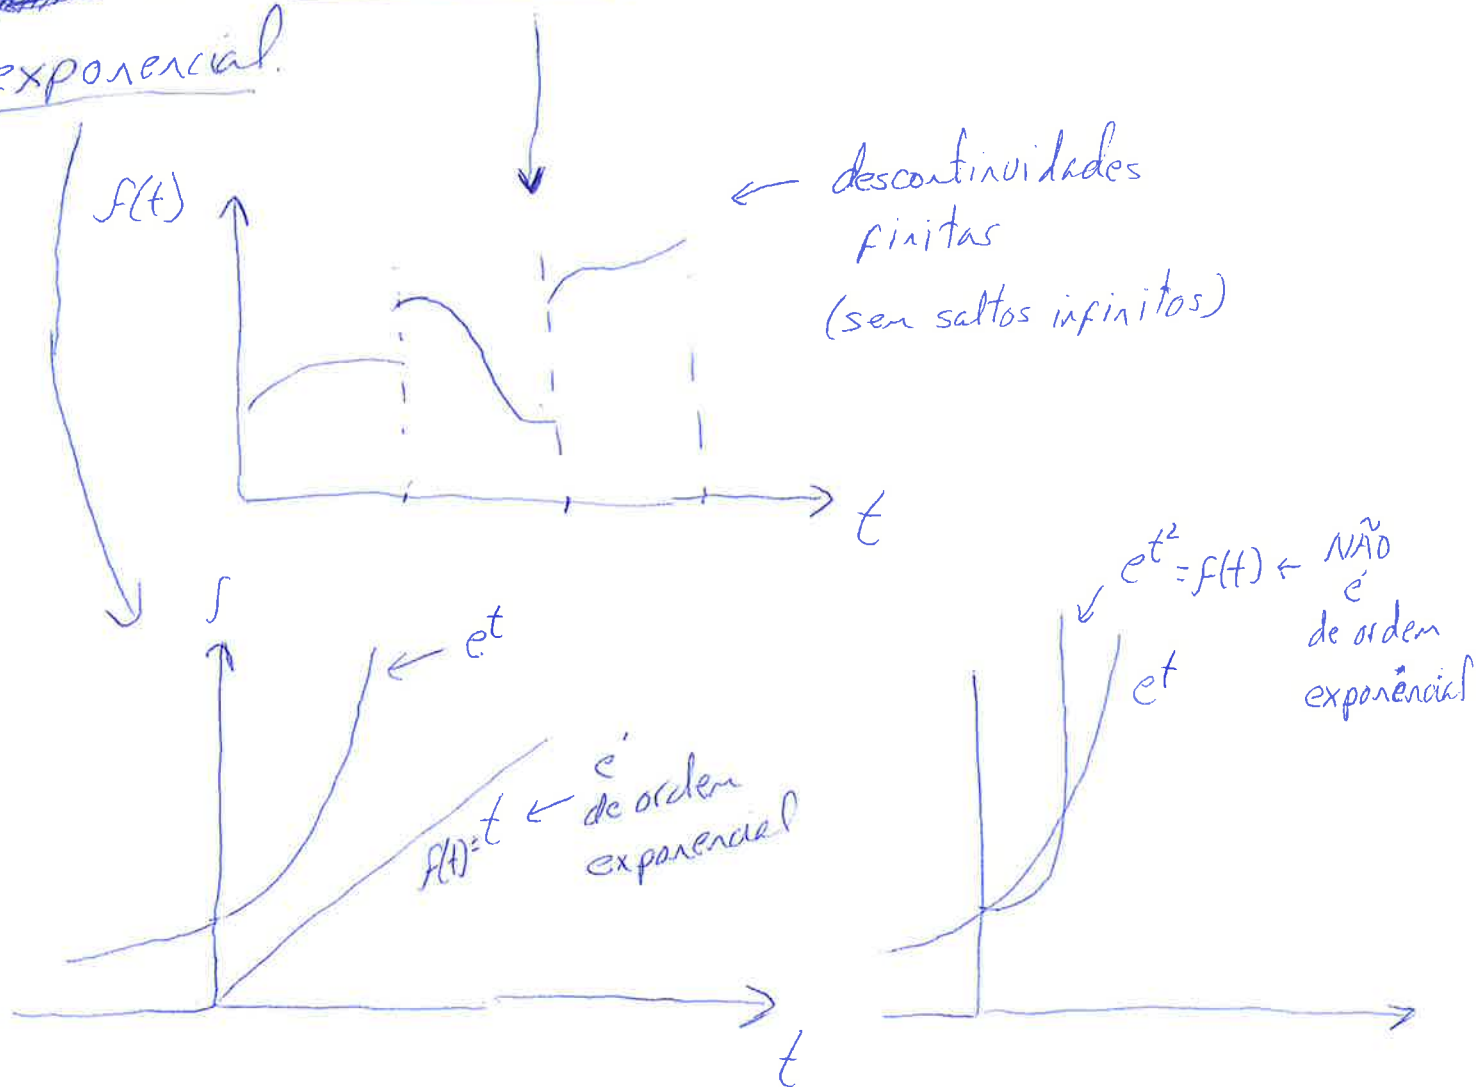 exponencial.
f(t)
← descontinuidades
finitas
(sem saltos infinitos)
t
f
← e^t
f(t)=t ← é
de ordem
exponencial
t
e^{t^2}=f(t) ← NÃO
é
de ordem
exponencial
e^t